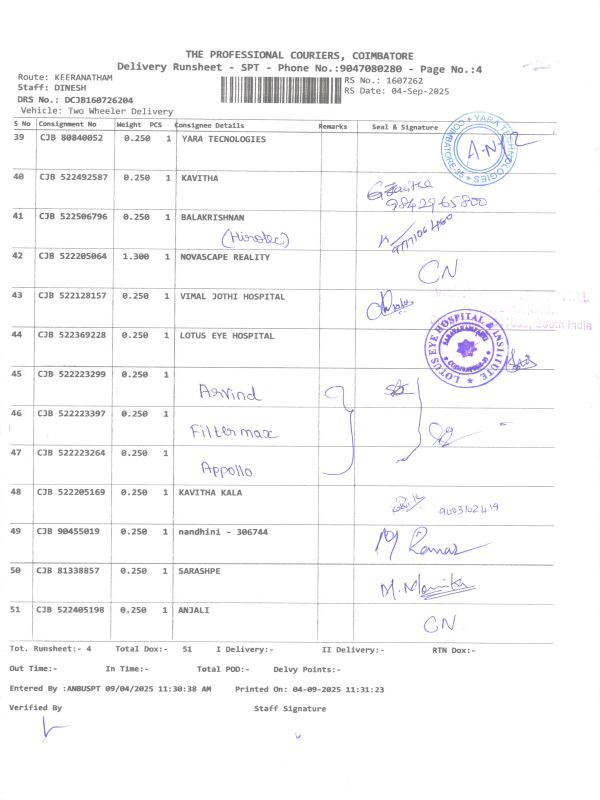 THE PROFESSIONAL COURIERS, COIMBATORE
Delivery Runsheet - SPT - Phone No.:9047080280 - Page No.:4
Route: KEERANATHAM
RS No.: 1607262
Staff: DINESH
RS Date: 04-Sep-2025
DRS No.: DCJB160726204
Vehicle: Two Wheeler Delivery
S No Consignment No Weight PCS Consignee Details Remarks Seal & Signature
39 CJB 80840052 0.250 1 YARA TECNOLOGIES
YARA TECHNOLOGIES COIMBATORE-35
40 CJB 522492587 0.250 1 KAVITHA
9842965800
41 CJB 522506796 0.250 1 BALAKRISHNAN
(Hirotec)
42 CJB 522205064 1.300 1 NOVASCAPE REALITY
CN
43 CJB 522128157 0.250 1 VIMAL JOTHI HOSPITAL
South India
44 CJB 522369228 0.250 1 LOTUS EYE HOSPITAL
LOTUS EYE HOSPITAL & INSTITUTE
45 CJB 522223299 0.250 1
Arvind
46 CJB 522223397 0.250 1
Filtermax
47 CJB 522223264 0.250 1
Appollo
48 CJB 522205169 0.250 1 KAVITHA KALA
9003162419
49 CJB 90455019 0.250 1 nandhini - 306744
50 CJB 81338857 0.250 1 SARASHPE
51 CJB 522405198 0.250 1 ANJALI
CN
Tot. Runsheet:- 4 Total Dox:- 51 I Delivery:- II Delivery:- RTN Dox:-
Out Time:- In Time:- Total POD:- Delvy Points:-
Entered By :ANBUSPT 09/04/2025 11:30:38 AM Printed On: 04-09-2025 11:31:23
Verified By Staff Signature